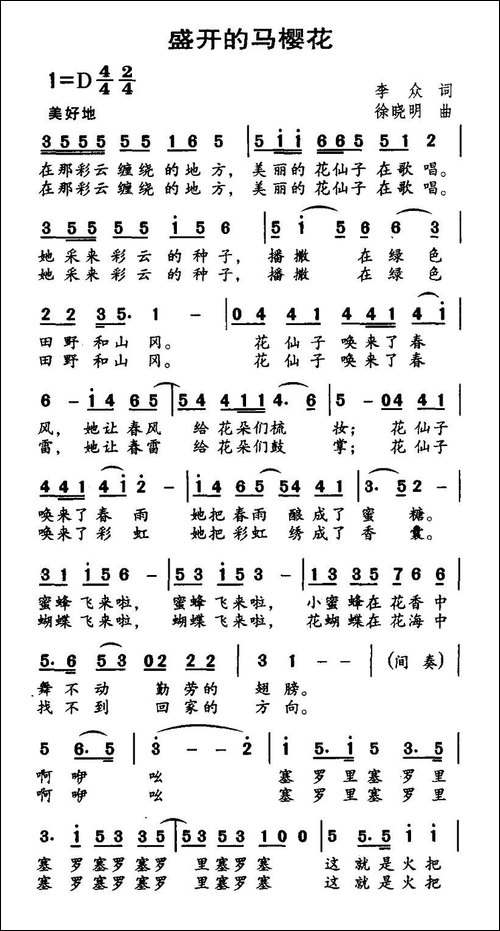 盛开的马樱花
1=D 4/4 2/4
李众 词
美好地
徐晓明 曲
3 5 5 5 5 5 1 6 5 | 5 i i 6 6 5 5 1 2 |
在那彩云缠绕的地方，美丽的花仙子在歌唱。
在那彩云缠绕的地方，美丽的花仙子在歌唱。
3 5 5 5 5 5 i 5 6 | 5 i 5 6 6 3 |
她采来彩云的种子，播撒 在绿色
她采来彩云的种子，播撒 在绿色
2 2 3 5· 1 - | 0 4 4 1 4 4 1 4 i |
田野和山冈。 花仙子唤来了春
田野和山冈。 花仙子唤来了春
6 - i 4 6 5 | 5 4 4 1 1 4· 6 | 5 - 0 4 4 1 |
风，她让春风 给花朵们梳 妆；花仙子
雷，她让春雷 给花朵们鼓 掌；花仙子
4 4 1 4 i 2 - | i 4 6 5 5 4 4 1 | 3· 5 2 - |
唤来了春雨 她把春雨酿成了蜜 糖。
唤来了彩虹 她把彩虹绣成了香 囊。
3 1 i 5 6 - | 5 3 i 5 3 - | 1 3 3 5 7 6 6 |
蜜蜂飞来啦，蜜蜂飞来啦，小蜜蜂在花香中
蝴蝶飞来啦，蝴蝶飞来啦，花蝴蝶在花海中
5· 6 5 3 0 2 2 2 | 3 1 - | - - - - | (间奏) |
舞不动 勤劳的 翅膀。
找不到 回家的 方向。
5 6· 5 | 3 - - 2 | i 5· i 5 3· 2 |
啊咿 吆 塞罗里塞罗里
啊咿 吆 塞罗里塞罗里
3· i 5 3 3 5 | 5 3 5 3 2 3 1 0 0 | 5 5· 5 i i |
塞罗塞罗塞罗 里塞罗塞 这就是火把
塞罗塞罗塞罗 里塞罗塞 这就是火把